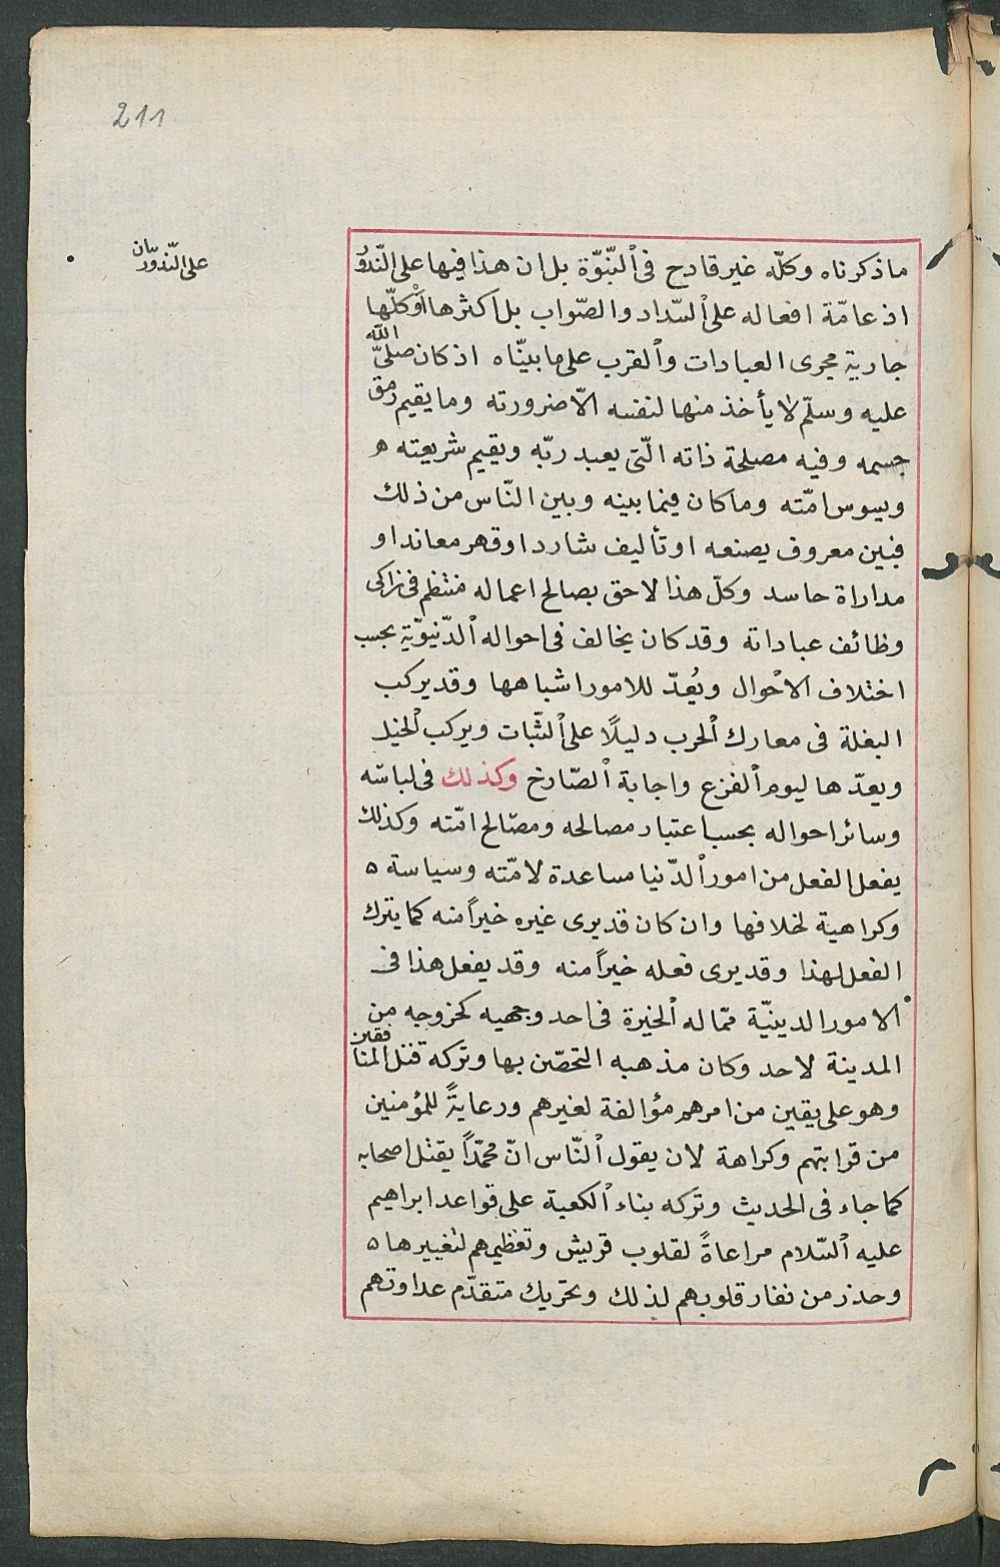 211
على النّدور بيان
ما ذكرناه وكلّه غير قادح فى ٱلنّبوّة بل ان هذا فيها على النّدور
اذ عامّة افعاله على ٱلسّداد والصّواب بل اكثرها اَوْ كلّها
جارية مجرى العبادات وٱلقرب على ما بيّنّاه اذ كان صلّى الله
عليه وسلّم لا يأخذ منها لنفسه الّا ضرورته وما يقيم رمق
جسمه وفيه مصلحة ذاته الّتى يعبد ربّه ويقيم شريعته ه
ويسوس امّته وما كان فيما بينه وبين النّاس من ذلك
فبين معروف يصنعه او تأليف شارد او قهر معاند او
مداراة حاسد وكلّ هذا لاحق بصالح اعماله منتظم فى زاكى
وظائف عباداته وقد كان يخالف فى احواله ٱلدّنيويّة بحسب
اختلاف الاحْوال ويُعدّ للامور اشباهها وقد يركب
البغلة فى معارك ٱلحرب دليلًا على ٱلثّبات ويركب ٱلخيل
ويعدّها ليوم ٱلفزع واجابة ٱلصّارخ وكذلك فى لباسه
وسائر احواله بحسب اعتبار مصالحه ومصالح امّته وكذلك
يفعل الفعل من امور ٱلدّنيا مساعدة لامّته وسياسة ه
وكراهية لخلافها وان كان قد يرى غيره خيراً منه كما يترك
الفعل لهذا وقد يرى فعله خيراً منه وقد يفعل هذا فى
الامور الدينيّة ممّا له ٱلخيرة فى احد وجهيه كخروجه من
المدينة لاحد وكان مذهبه التحصّن بها وتركه قتل المنافقين
وهو على يقين من امرهم مؤالفة لغيرهم ورعايةً للمؤمنين
من قرابتهم وكراهة لان يقول ٱلنّاس انّ محمّداً يقتل اصحابه
كما جاء فى الحديث وتركه بناء ٱلكعبة على قواعد ابراهيم
عليه ٱلسّلام مراعاةً لقلوب قريش وتعظيمهم لتغييرها ه
وحذر من نفار قلوبهم لذلك وتحريك متقدّم عداوتهم